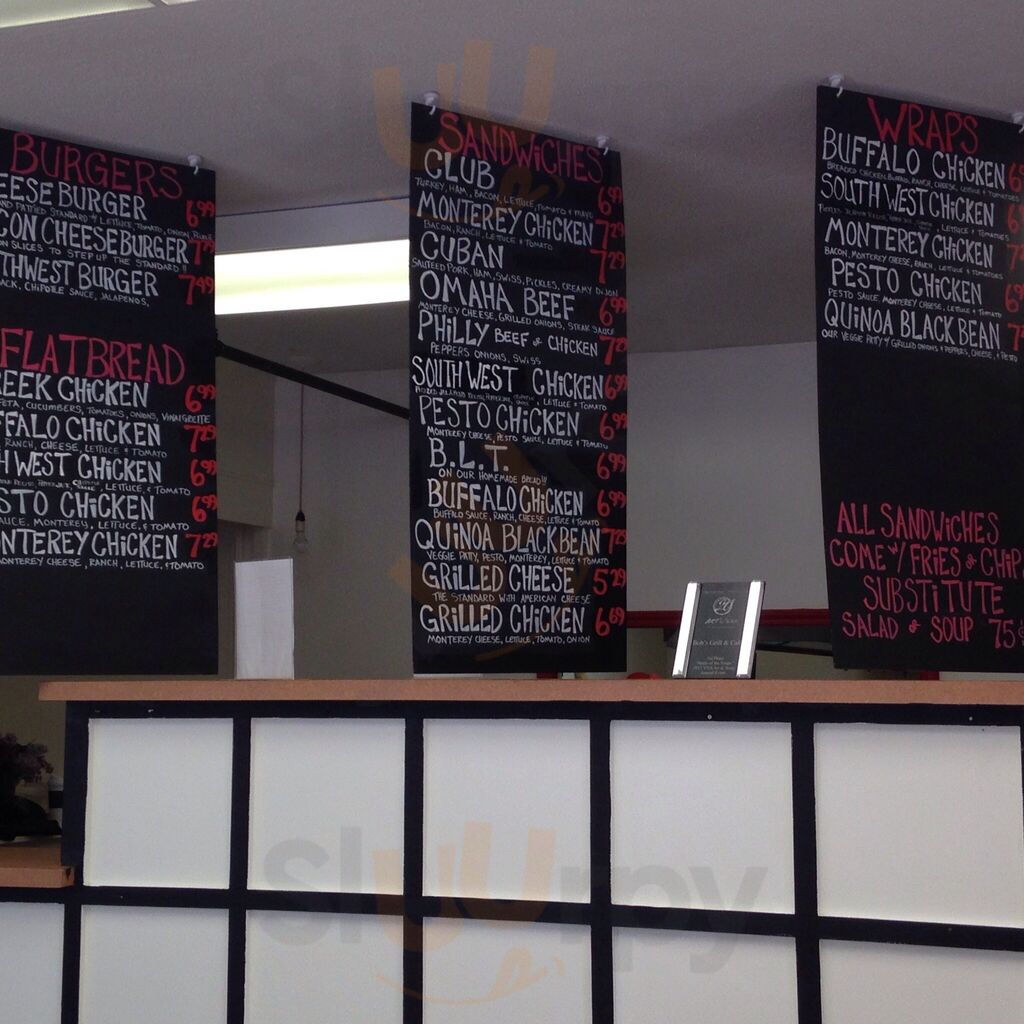 BURGERS
EESE BURGER 6.99
AND PATTIED STANDARD W/ LETTUCE, TOMATO, ONION,
CON CHEESEBURGER 7.29
ON SLICES TO STEP UP THE STANDARD!!
THWEST BURGER 7.49
JACK, CHIPOTLE SAUCE, JALAPENOS,
FLATBREAD
EEK CHICKEN 6.99
FETA, CUCUMBERS, TOMATOES, ONIONS, VINAIGRETTE
FFALO CHICKEN 7.29
RANCH, CHEESE, LETTUCE & TOMATO
H WEST CHICKEN 6.99
LETTUCE, & TOMATO
STO CHICKEN 6.99
AUCE, MONTEREY, LETTUCE, & TOMATO
NTEREY CHICKEN 7.29
ONTEREY CHEESE, RANCH, LETTUCE, & TOMATO
SANDWICHES
CLUB 6.99
TURKEY, HAM, BACON, LETTUCE, TOMATO & MAYO
MONTEREY CHICKEN 7.29
BACON, RANCH, LETTUCE & TOMATO
CUBAN 7.29
SAUTEED PORK, HAM, SWISS, PICKLES, CREAMY DIJON
OMAHA BEEF 6.99
MONTEREY CHEESE, GRILLED ONIONS, STEAK SAUCE
PHILLY BEEF & CHICKEN 7.29
PEPPERS ONIONS, SWISS
SOUTH WEST CHICKEN 6.99
LETTUCE & TOMATO
PESTO CHICKEN 6.99
MONTEREY CHEESE, PESTO SAUCE, LETTUCE & TOMATO
B.L.T. 6.99
ON OUR HOMEMADE BREAD!!!
BUFFALO CHICKEN 6.99
BUFFALO SAUCE, RANCH, CHEESE, LETTUCE & TOMATO
QUINOA BLACK BEAN 7.29
VEGGIE PATTY, PESTO, MONTEREY, LETTUCE & TOMATO
GRILLED CHEESE 5.29
THE STANDARD WITH AMERICAN CHEESE
GRILLED CHICKEN 6.69
MONTEREY CHEESE, LETTUCE, TOMATO, ONION
WRAPS
BUFFALO CHICKEN 6
BREADED CHICKEN, BUFFALO, RANCH, CHEESE, LETTUCE & TOMATOES
SOUTH WEST CHICKEN 6
LETTUCE & TOMATO
MONTEREY CHICKEN 7
BACON, MONTEREY CHEESE, RANCH, LETTUCE & TOMATOES
PESTO CHICKEN 6
PESTO SAUCE, MONTEREY CHEESE, LETTUCE & TOMATO
QUINOA BLACK BEAN 7
OUR VEGGIE PATTY W/ GRILLED ONIONS & PEPPERS, CHEESE, & PESTO
ALL SANDWICHES
COME W/ FRIES & CHIP
SUBSTITUTE
SALAD & SOUP 75¢
Bob's Grill & Caf
sluurpy